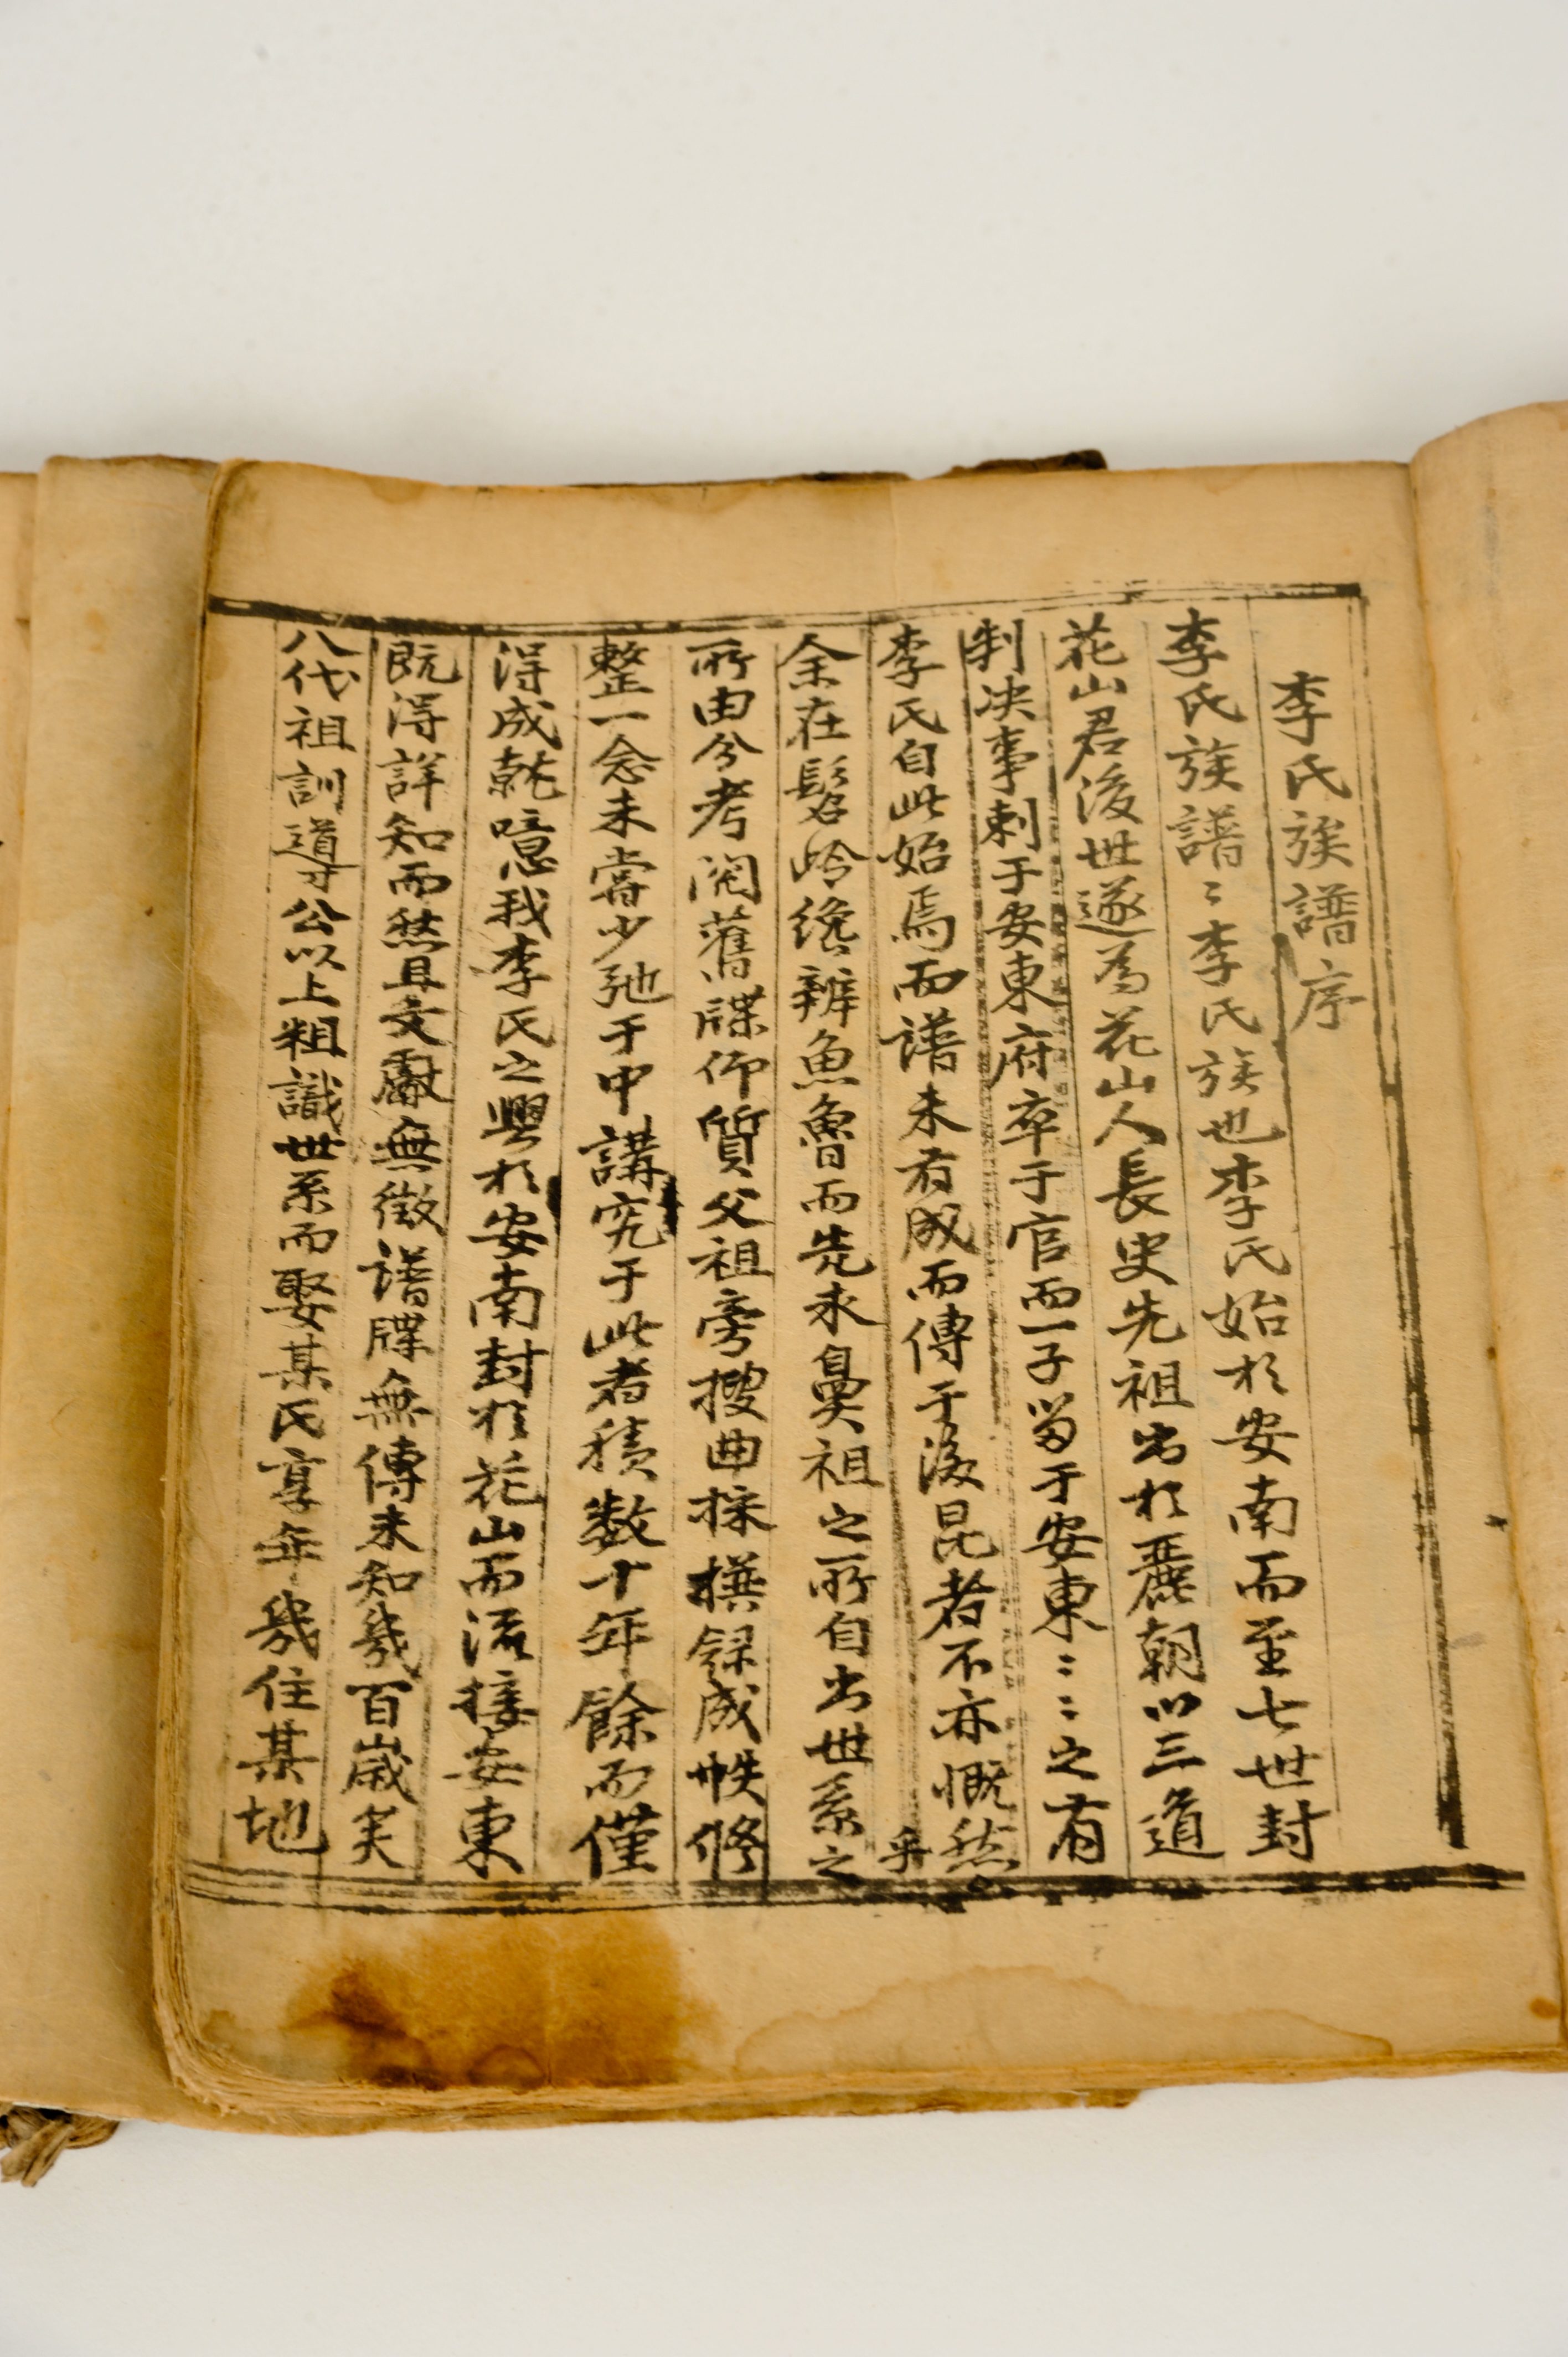 李氏族譜序
李氏族譜〻李氏族也李氏始於安南而至七世封
花山君後世遂為花山人長史先祖出於麗朝以三道
判决事剌于安東府卒于官而一子留于安東〻〻之有
李氏自此始焉而譜未有成而傳于後昆者不亦慨然乎
余在髫岭纔辨魚魯而先求鼻祖之所自出世系之
所由分考閱舊牒仰質父祖旁搜曲採撰録成帙修
整一念未嘗少弛于中講究于此者積数十年餘而僅
得成就噫我李氏之興於安南封於花山而流接安東
既得詳知而然且文獻無徵譜牒無傳未知幾百歲矣
八代祖訓導公以上粗識世系而娶某氏享年幾住某地